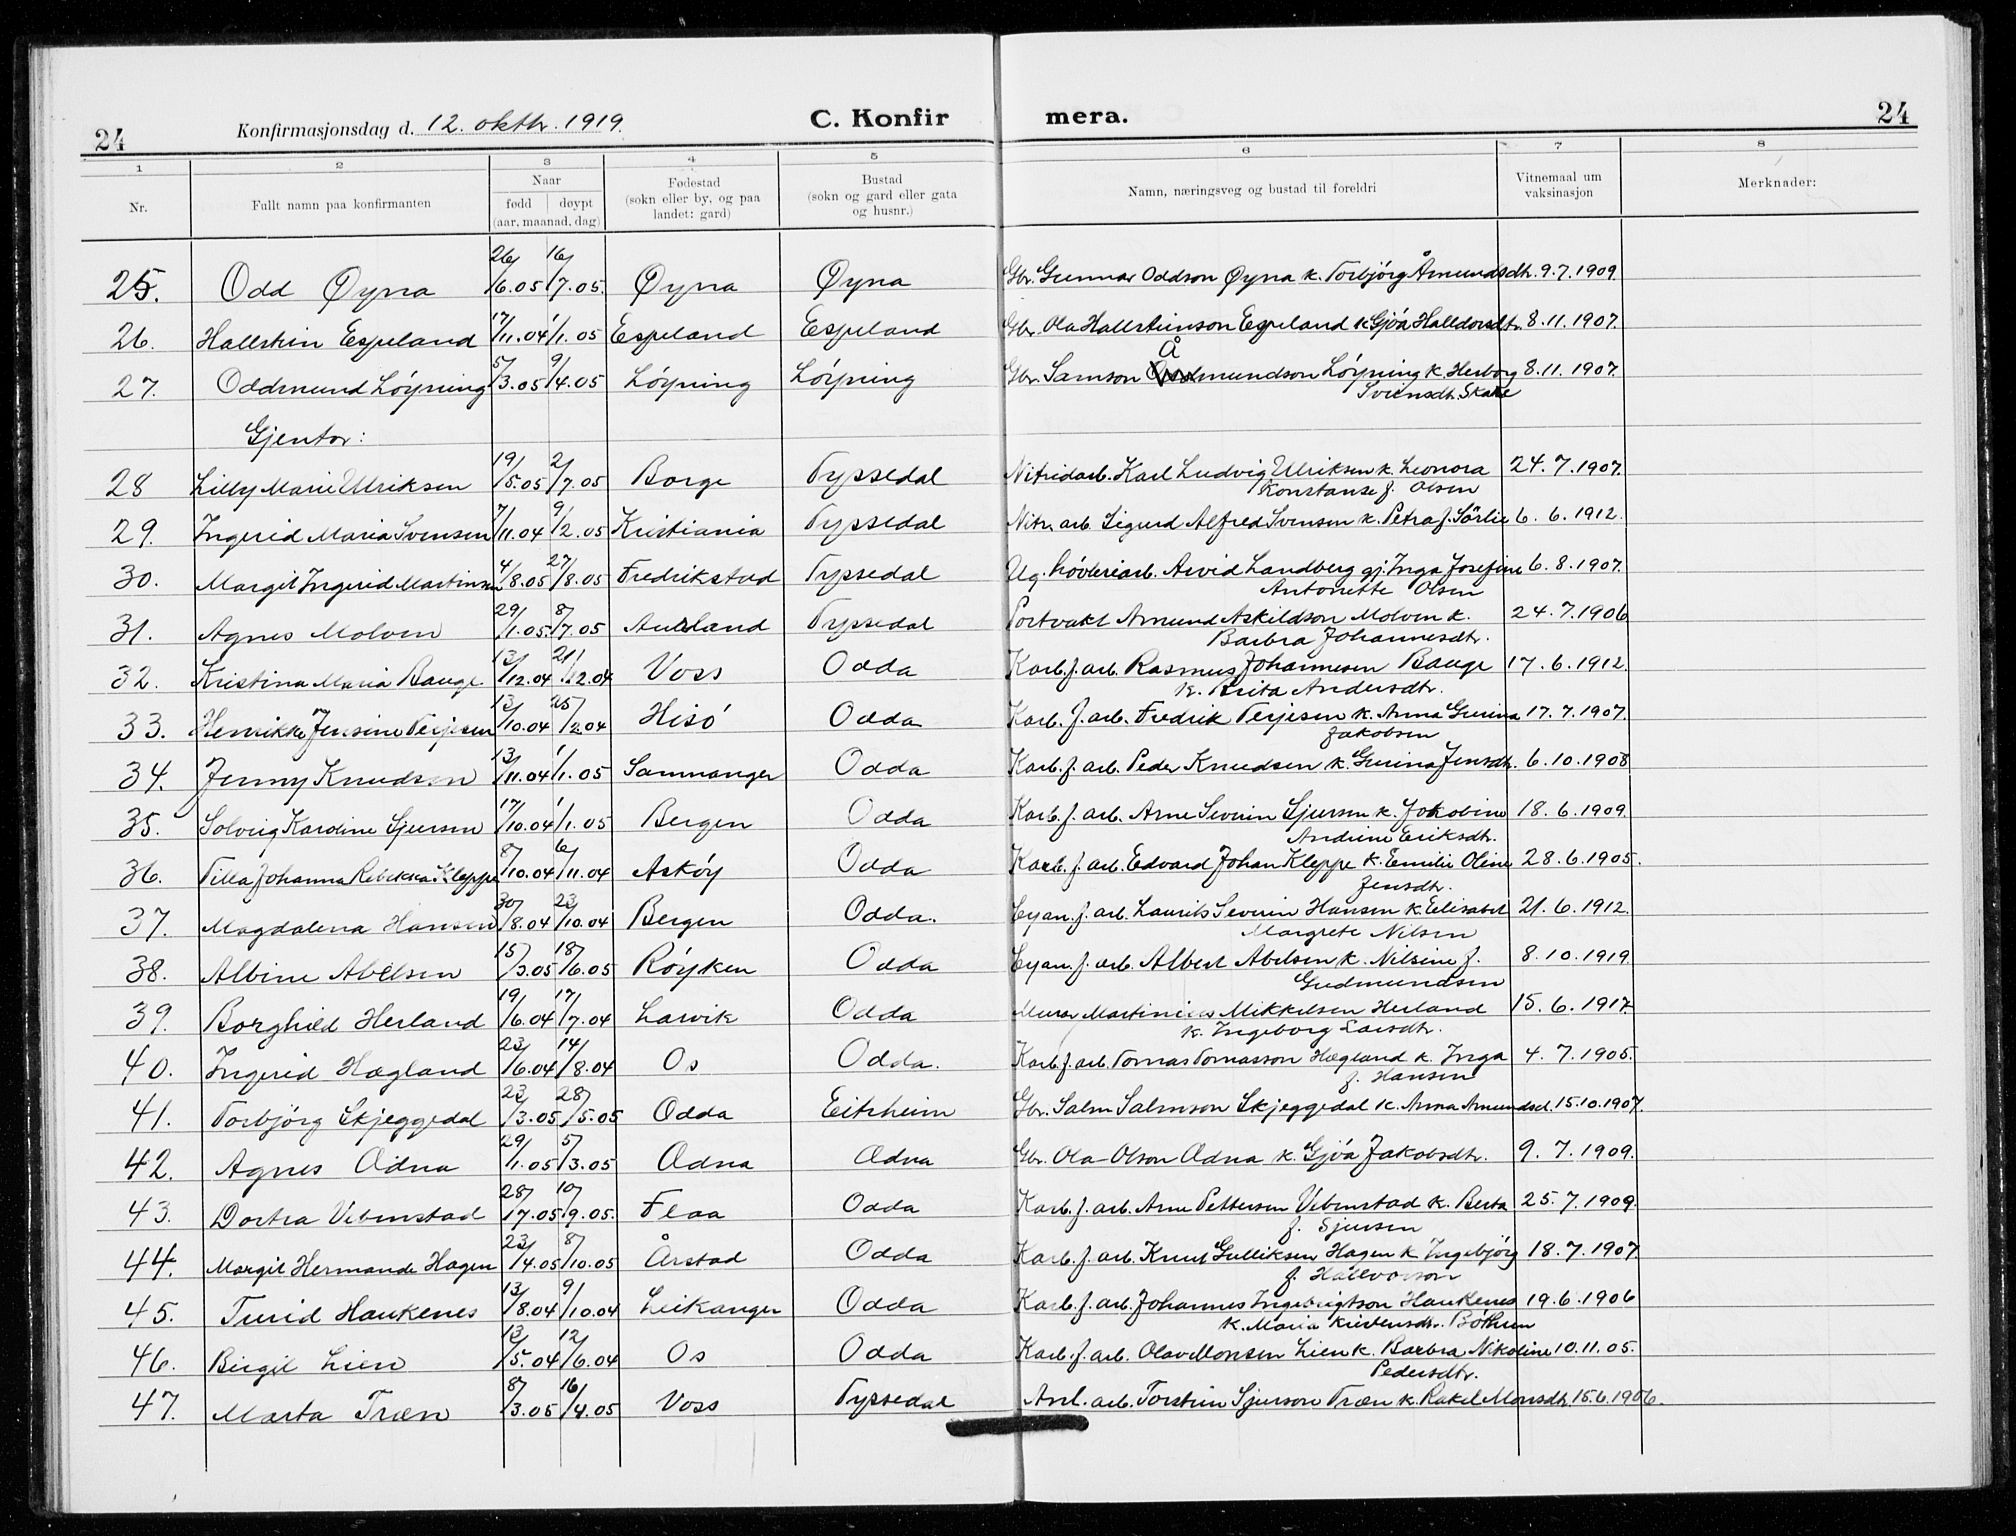 24 Konfirmasjonsdag d. 12. oktbr. 1919. C. Konfir mera. 24
1 2 3 4 5 6 7 8
Nr. Fullt namn paa konfirmanten Naar fødd døypt (aar, maanad, dag) Fødestad (sokn eller by, og paa landet: gard) Bustad (sokn og gard eller gata og husnr.) Namn, næringsveg og bustad til foreldri Vitnemaal um vaksinasjon Merknader:
25. Odd Øyna 26/6.05 16/7.05. Øyna Øyna Gbr. Gunnar Oddson Øyna k. Torbjórg Åmundsdtr. 9.7.1909.
26. Hallstein Espeland 17/11.04 1/1.05 Espeland Espeland Gbr. Ola Hallsteinson Espeland k. Gjóa Halldorsdtr. 8.11.1907.
27. Oddmund Lóyning 5/3.05 9/4.05 Lóyning Lóyning Gbr. Samson Åmundson Lóyning k. Herborg 8.11.1907.
Sveinsdtr. Skare
Gjentor:
28 Lilly Marie Ulriksen 19/5.05 2/7.05 Borge Tyssedal Nitridarb. Karl Ludvig Ulriksen k. Leonora 24.7.1907.
Konstanse f. Olsen
29. Ingerid Maria Svensen 7/11.04 9/2.05 Kristiania Tyssedal Nitr. arb. Sigurd Alfred Svensen k. Petra f. Sórlie 6.6.1912.
30. Margit Ingerid Martinsen 4/8.05 27/8.05 Fredrikstad Tyssedal Ug. hóvleriarb. Arvid Landberg gj. Inga Josefine 6.8.1907.
Antonette Olsen
31. Agnes Molven 29/1.05. 8/7.05 Aurland Tyssedal Portvakt Amund Askildson Molven k. 24.7.1906
Barbra Johannesdtr.
32. Kristina Maria Bauge 13/12.04 21/12.04 Voss Odda Karb. f. arb. Rasmus Johannesen Bauge 17.6.1912.
k. Brita Andersdtr.
33. Henrikke Jensine Terjesen 13/10.04 25/2.04 Hisó Odda Karb. f. arb. Fredrik Terjesen k. Anna Gurina 17.7.1907.
Jakobsen
34. Jenny Knudsen 13/11.04 1/1.05 Samnanger Odda Karb. f. arb. Peder Knudsen k. Gurina Jensdtr. 6.10.1908
35. Solveig Karoline Sjursen 17/10.04 1/1.05 Bergen Odda Karb. f. arb. Arne Severin Sjursen k. Jakobine 18.6.1909.
Andrine Eriksdtr.
36. Tilla Johanna Rebekka Kleppe 8/10.04 6/11.04 Askóy Odda Karb. f. arb. Edvard Johan Kleppe k. Emilie Oline 28.6.1905.
Jensdtr.
37. Magdalena Hansen 30/8.04 23/10.04 Bergen Odda. Cyan. f. arb. Laurits Severin Hansen k. Elisabet 21.6.1912.
Margrete Nilsen
38. Albine Abelsen 15/3.05 18/6.05 Róyken Odda Cyan. f. arb. Albert Abelsen k. Nilsine f. 8.10.1919.
Gudmundsen
39. Borghild Herland 19/6.04 17/7.04 Larvik Odda Murar Martinius Mikkelsen Herland 15.6.1917.
k. Ingeborg Larsdtr.
40. Ingerid Hægland 23/6.04 14/8.04 Os Odda. Karb. f. arb. Tomas Tomasson Hægland k. Inga 4.7.1905.
f. Hansen
41. Torbjórg Skjeggedal 23/3.05 28/5.05 Odda Eitrheim Gbr. Salm Salmson Skjeggedal k. Anna Amundsd. 15.10.1907.
42. Agnes Ødna 29/1.05 5/3.05 Ødna Ødna Gbr. Ola Olson Ødna k. Gjóa Jakobsdtr. 9.7.1909.
43. Dortea Vebenstad 28/7.05 10/9.05. Flaa Odda Karb. f. arb. Arne Pettersen Vebenstad k. Berta 25.7.1909.
f. Sjursen
44. Margit Hermande Hagen 23/4.05 8/10.05 Årstad Odda Karb. f. arb. Knut Gulliksen Hagen k. Ingebjórg 18.7.1907.
f. Hallvorson
45. Turid Haukenes 13/8.04 9/10.04 Leikanger Odda Karb. f. arb. Johannes Ingebrigtson Haukenes 19.6.1906
k. Maria Kristensdtr.
46. Birgit Lien 13/5.04 12/6.04 Os Odda Karb. f. arb. Olav Monsen Lien k. Barbra Nikoline 10.11.05.
Pedersdtr.
47. Marta Træn 8/3.05 16/4.05 Voss Tyssedal Anl. arb. Torstein Sjurson Træn k. Rakel Monsdtr. 15.6.1906.